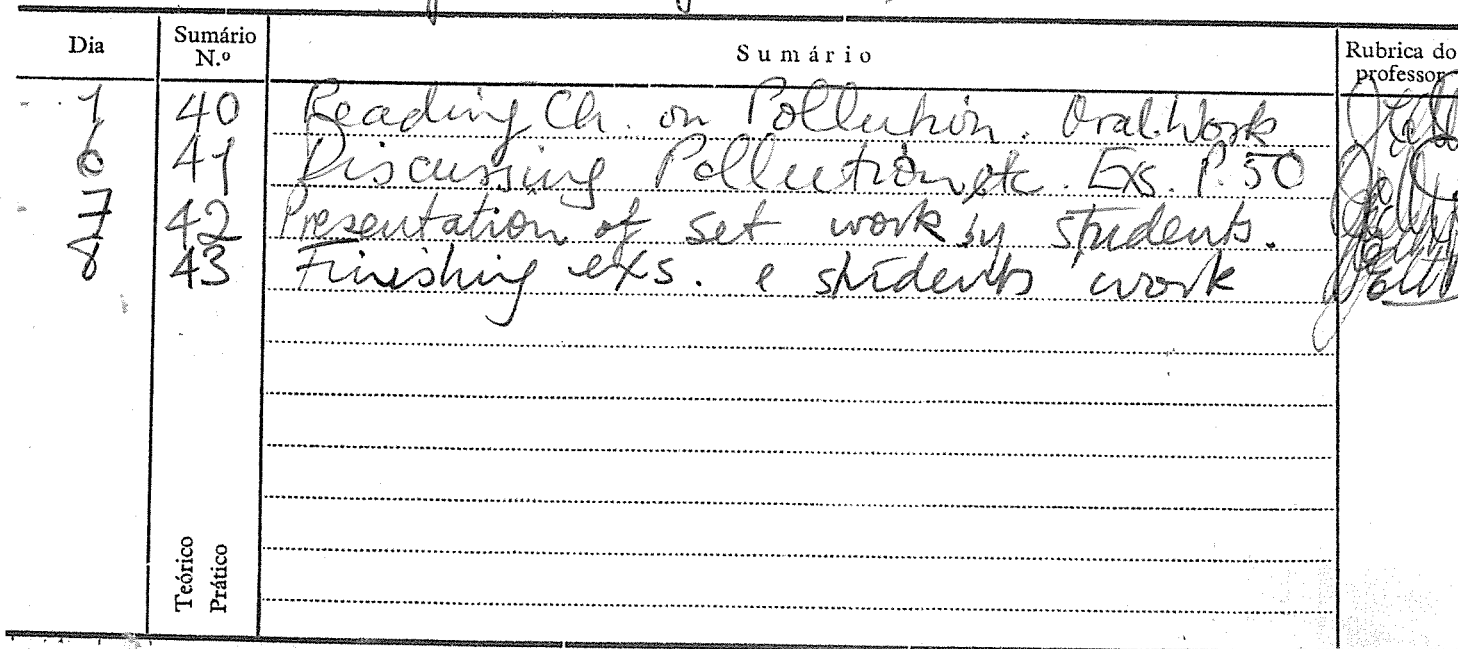 Dia Sumário N.º Sumário Rubrica do professor
1 40 Reading Ch. on Pollution. Oral Work
6 41 Discussing Pollution etc. Exs. P. 50
7 42 Presentation of set work by students.
8 43 Finishing exs. e students work
Teórico
Prático